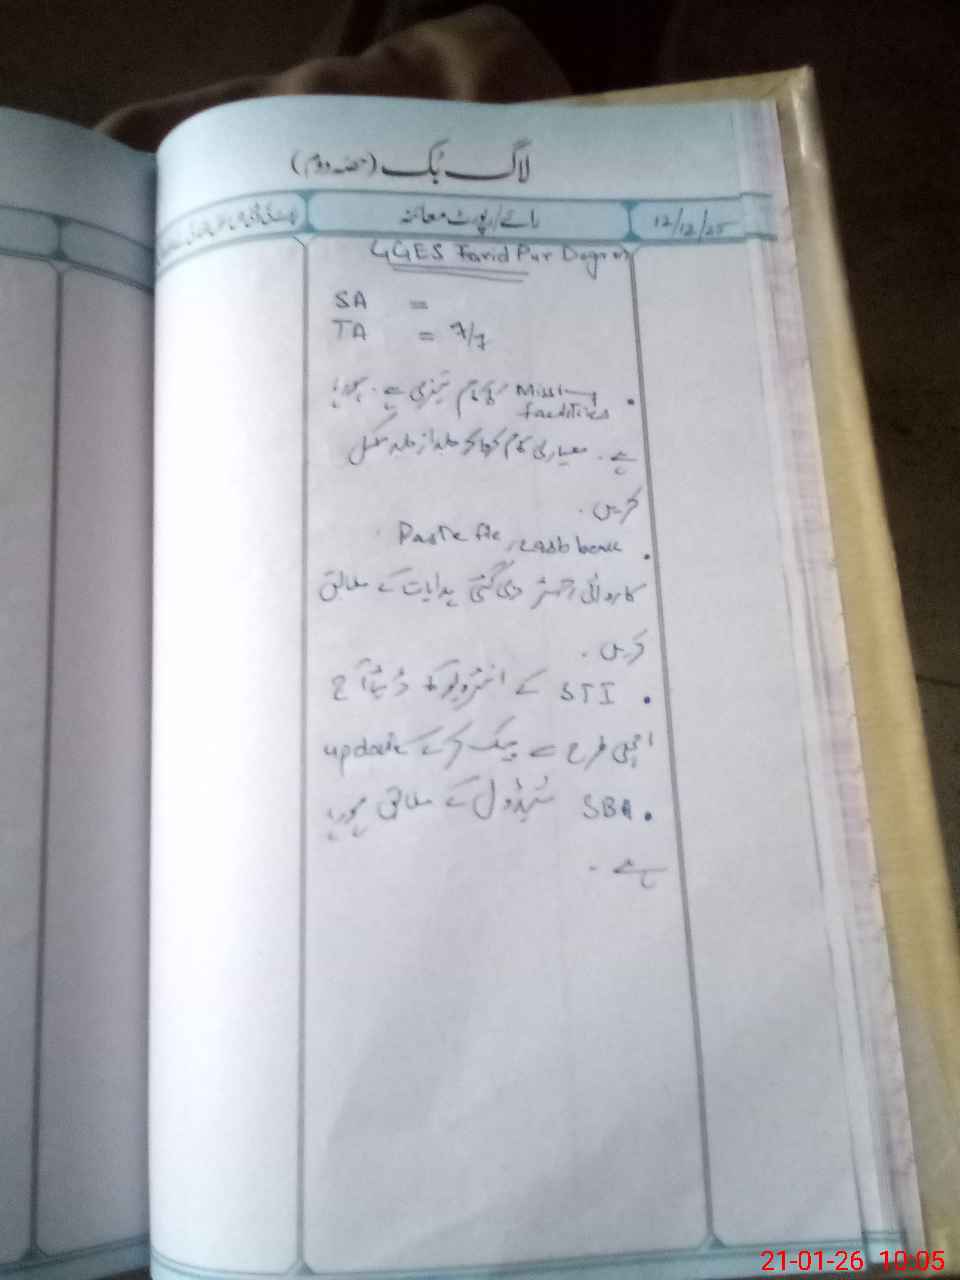 لاگ بک (حصہ دوم)
رائے/رپورٹ معائنہ
12/12/25
GGES Farid Pur Dogran
SA =
TA = 7/7
• Missing facilities کا کام تیزی سے ہو رہا
ہے۔ معیاری کام کا کہا کہ جلد از جلد مکمل
کریں۔
• Paste file, cash book
کاروائی رجسٹر دی گئی ہدایات کے مطابق
کریں۔
• STI کے انٹرویو کا ڈیٹا آج
اچھی طرح سے چیک کر کے update
• SBA شیڈول کے مطابق ہو رہا
ہے۔
21-01-26 10:05